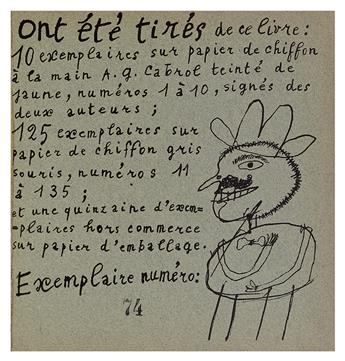 Ont été tirés de ce livre:
10 exemplaires sur papier de chiffon
à la main A.G. Cabrol teinté de
jaune, numéros 1 à 10, signés des
deux auteurs ;
125 exemplaires sur
papier de chiffon gris
souris, numéros 11
à 135 ;
et une quinzaine d'exem=
=plaires hors commerce
sur papier d'emballage.
Exemplaire numéro:
74